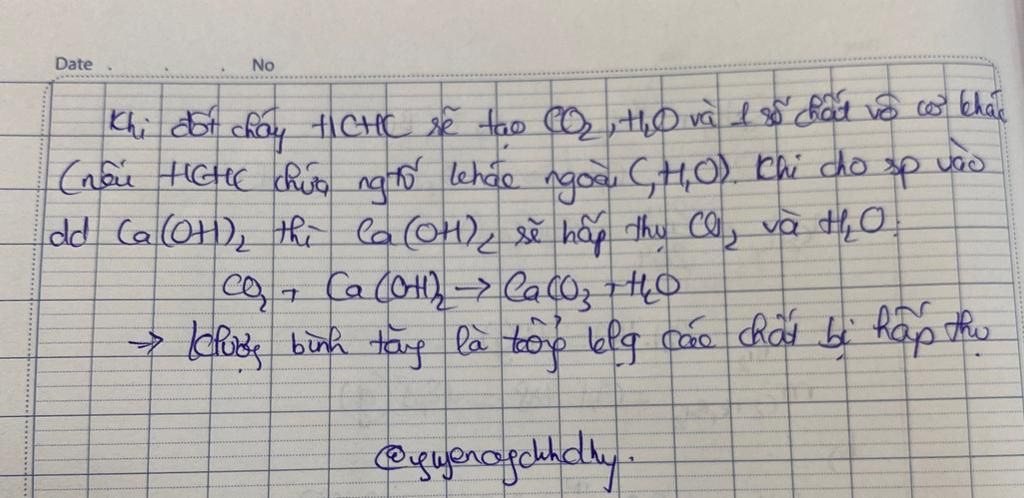 Date . . . No
Khi đốt cháy HCHC sẽ tạo CO2, H2O và 1 số chất vô cơ khác
(nếu HCHC chứa ngtố khác ngoài C,H,O). Khi cho sp vào
dd Ca(OH)2 thì Ca(OH)2 sẽ hấp thụ CO2 và H2O.
CO2 + Ca(OH)2 → CaCO3 + H2O
→ klượng bình tăng là tổng klg các chất bị hấp thụ